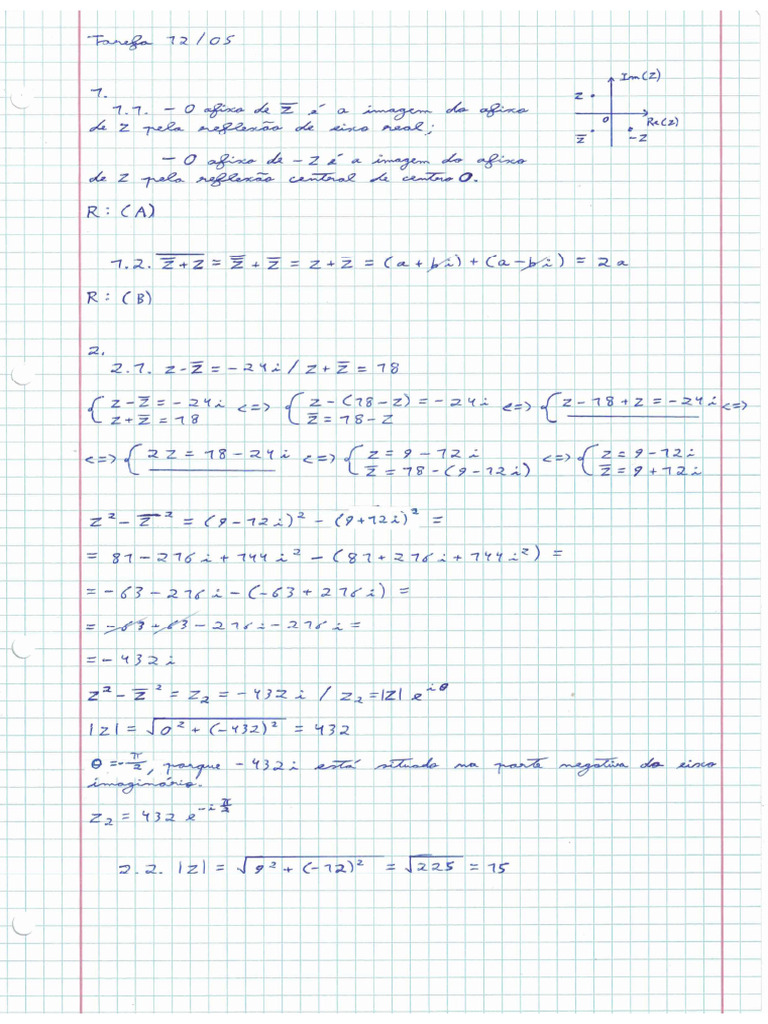 Tarefa 12/05
Im(z)
z
0
Re(z)
z̅
-z
1.
1.1. - O afixo de z̅ é a imagem do afixo
de z pela reflexão de eixo real;
- O afixo de -z é a imagem do afixo
de z pela reflexão central de centro O.
R: (A)
1.2. \overline{z̅ + z} = \overline{z̅} + z̅ = z + z̅ = (a + bi) + (a - bi) = 2a
R: (B)
2.
2.1. z - z̅ = -24i / z + z̅ = 18
{ z - z̅ = -24i ; z + z̅ = 18 <=> { z - (18 - z) = -24i ; z̅ = 18 - z <=> { z - 18 + z = -24i ; ______ <=>
<=> { 2z = 18 - 24i ; ______ <=> { z = 9 - 12i ; z̅ = 18 - (9 - 12i) <=> { z = 9 - 12i ; z̅ = 9 + 12i
z² - z̅² = (9 - 12i)² - (9 + 12i)² =
= 81 - 216i + 144i² - (81 + 216i + 144i²) =
= -63 - 216i - (-63 + 216i) =
= -63 + 63 - 216i - 216i =
= -432i
z² - z̅² = z₂ = -432i / z₂ = |z| e^{iθ}
|z| = √(0² + (-432)²) = 432
θ = -π/2, porque -432i está situado na parte negativa do eixo
imaginário.
z₂ = 432 e^{-iπ/2}
2.2. |z| = √(9² + (-12)²) = √225 = 15